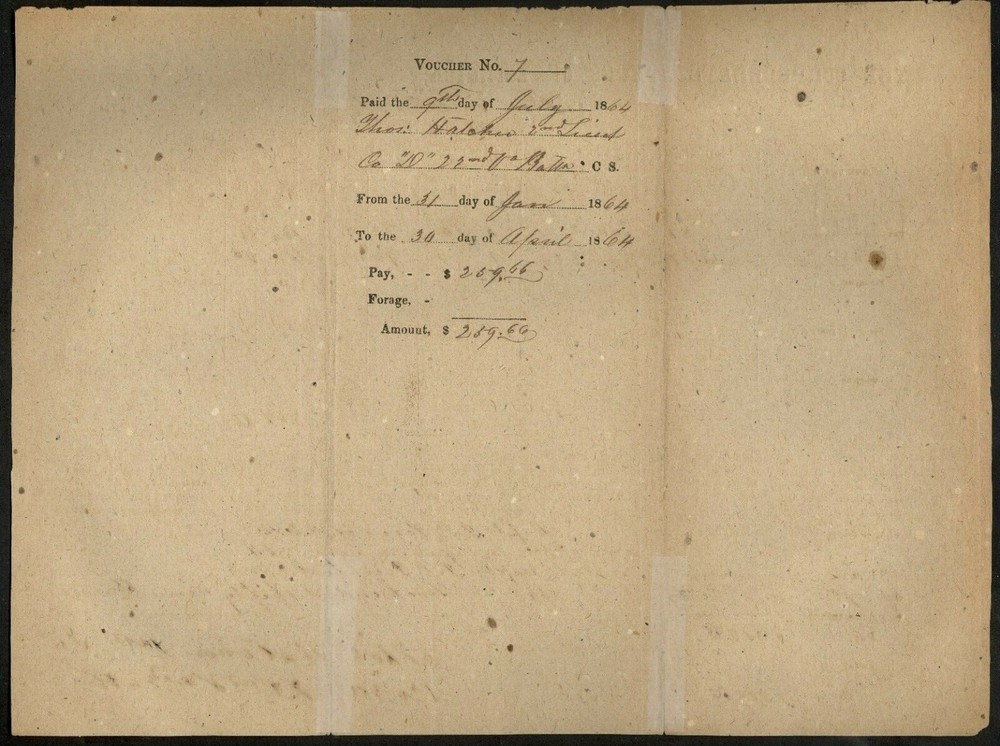 VOUCHER No. 7
Paid the 9th day of July 1864
Thos. Hatcher 2nd Lieut
Co "D" 22nd Va Battn C S.
From the 31 day of Jan 1864
To the 30 day of April 1864
Pay, - - $ 259.66
Forage, -
Amount, $ 259.66